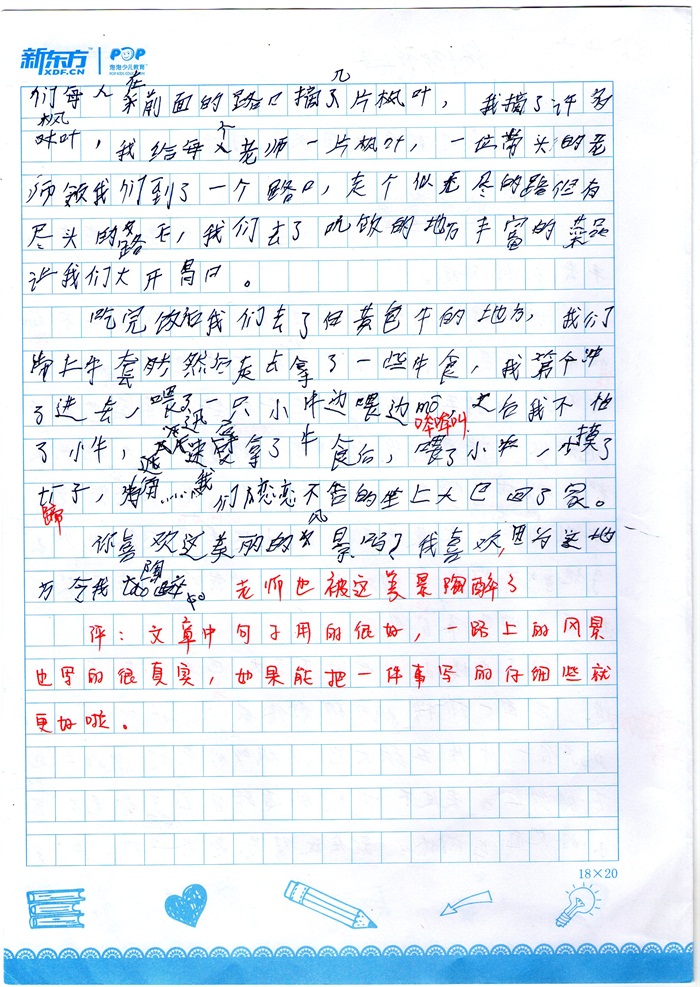 新东方 XDF.CN POP 泡泡少儿教育
们每人在前面的路口摘了几片枫叶，我摘了许多
枫叶，我给每个老师一片枫叶，一位带头的老
师领我们到了一个路口，走个似无尽的路但有
尽头的路 ，我们去了吃饭的地方丰富的菜品
让我们大开胃口。
吃完饭后我们去了 黄色牛的地方，我们
带上手套 然后走去拿了一些牛食，我第个冲
了进去，喂了一只小牛边喂边mō 之后我不怕
哞哞叫
了小牛， 迅速 拿了牛食后，喂了小牛，小摸了
子， 我们恋恋不舍的坐上大巴回了家。
蹄
你喜欢这美丽的风景吗？我喜欢，因为这地
方令我táo陶醉 老师也被这美景陶醉了
评：文章中句子用的很好，一路上的风景
也写的很真实，如果能把一件事写的仔细些就
更好啦。
18×20
新东方 XDF.CN